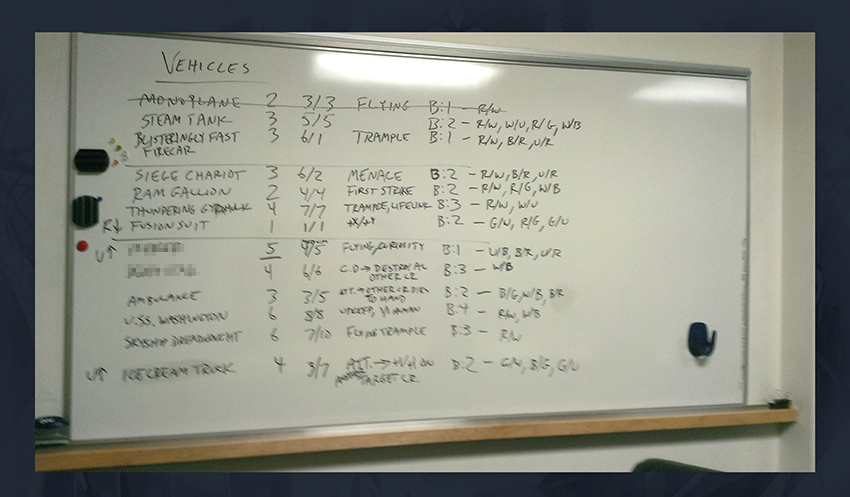 VEHICLES
MONOPLANE 2 3/3 FLYING B:1 - R/W
STEAM TANK 3 5/5 B:2 - R/W, W/U, R/G, W/B
BLISTERINGLY FAST 3 6/1 TRAMPLE B:1 - R/W, B/R, U/R
FIRECAR
SIEGE CHARIOT 3 6/2 MENACE B:2 - R/W, B/R, U/R
RAM GALLION 2 4/4 FIRST STRIKE B:2 - R/W, R/G, W/B
THUNDERING 4 7/7 TRAMPLE, LIFELINK B:3 - R/W, W/U
R↓ FUSION SUIT 1 1/1 +X/+Y B:2 - G/U, R/G, G/U
U↑ 5 4/5 FLYING, CURIOSITY B:1 - U/B, B/R, U/R
4 6/6 C.D → DESTROY AL B:3 - W/B
OTHER CR
AMBULANCE 3 3/5 ATT. → OTHER CR DIES B:2 - B/G, W/B, B/R
TO HAND
U.S.S. WASHINGTON 6 8/8 B:4 - R/W, W/B
SKYSHIP DREADNOUGHT 6 7/10 FLYING TRAMPLE B:3 - R/W
U↑ ICECREAM TRUCK 4 3/7 ATT. → +1/+1 ON B:2 - G/W, B/G, G/U
TARGET CR